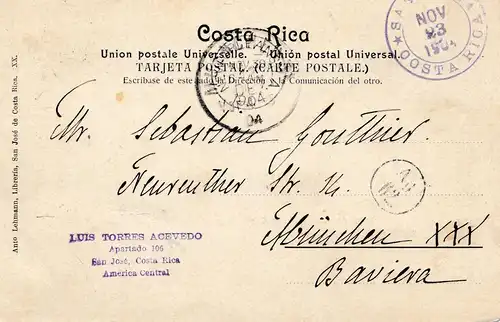 Costa Rica
Union postale Universelle. Unión postal Universal.
TARJETA POSTAL (CARTE POSTALE.)
Escríbase de este lado la Dirección la Comunicación del otro.
NOV
23
COSTA RICA
Mr. Sebastian Gouthier.
Neureuther Str.
München XXX
Baviera
LUIS TORRES ACEVEDO
Apartado 106
San José, Costa Rica
America Central
Anto Lehmann, Librería, San José de Costa Rica. XX.